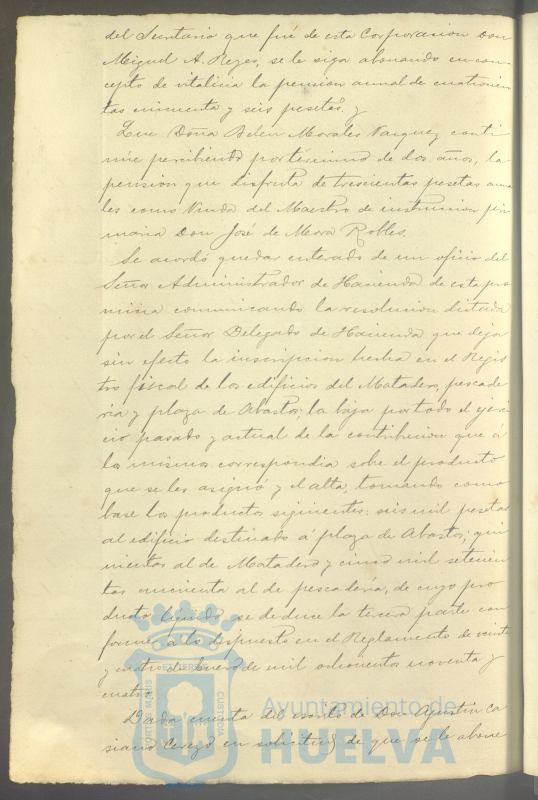 del Secretario que fué de esta Corporacion Don
Miguel A. Reyes, se le siga abonando en con-
cepto de vitalicia la pension anual de cuatrocien
tas cincuenta y seis pesetas. y
Que Doña Belen Morales Vazquez conti
núe percibiendo por término de dos años, la
pension que disfruta de trescientas pesetas anua
les como Viuda del Maestro de instruccion pri
maria Don José de Mora Robles.
Se acordó quedar enterado de un oficio del
Señor Administrador de Hacienda de esta pro
vincia comunicando la resolucion dictada
por el Señor Delegado de Hacienda que deja
sin efecto la inscripcion hecha en el Regis
tro fiscal de los edificios del Matadero, pescade
ria y plaza de Abastos; la baja por todo el ejerci
cio pasado y actual de la contribucion que á
los mismos correspondia sobre el producto
que se les asignó y el alta, tomando como
base los productos siguientes: seis mil pesetas
al edificio destinado á plaza de Abastos; qui
nientas al de Matadero y cinco mil setecien
tas cincuenta al de pescadería, de cuyo pro
ducto se deduce la tercera parte con
forme a lo dispuesto en el Reglamento de veinte
y cuatro de Enero de mil ochocientos noventa y
cuatro.
Dada cuenta del escrito de Don Agustin Ca
siano en solicitud de que se le abone
PORTUS MARIS ET TERRAE CUSTODIA
Ayuntamiento de
HUELVA